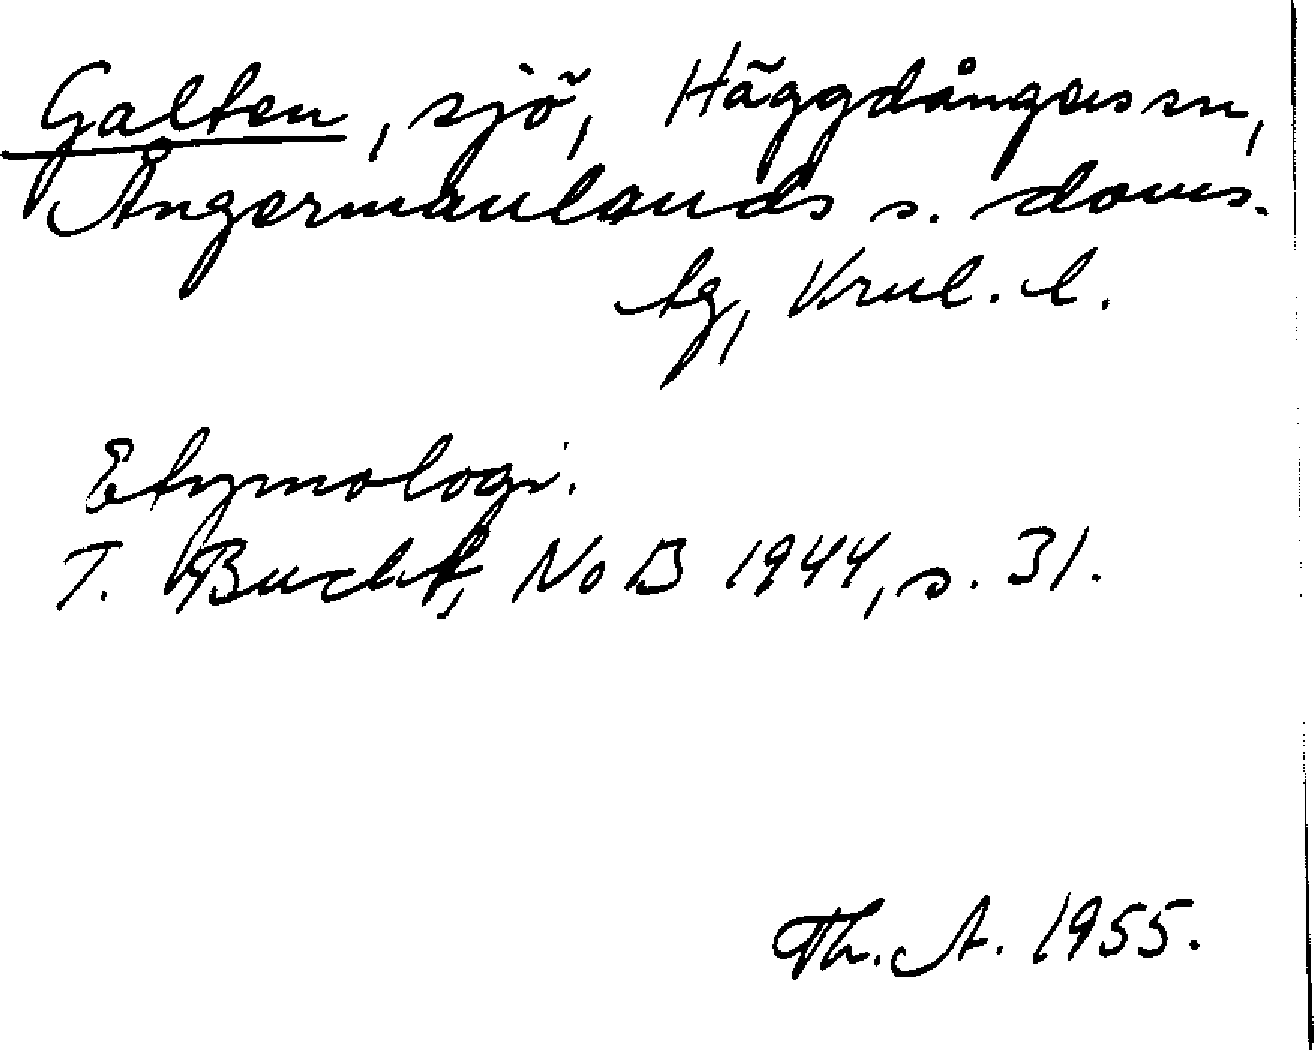 Galten, sjö, Häggdångers sn,
Ångermanlands s. doms.
tg, Vrnl. l.
Etymologi.
T. Bucht, NoB 1944, s. 31.
Th. A. 1955.